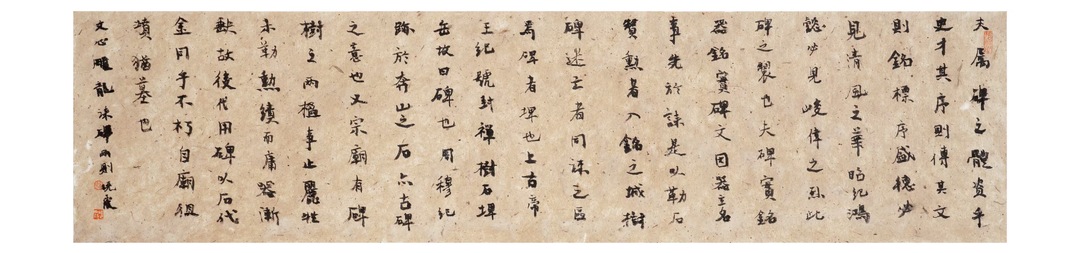 夫属碑之體資乎
史才其序則傳其文
則銘標序盛德必
見清風之華昭紀鴻
懿必見峻偉之烈此
碑之製也夫碑實銘
器銘實碑文因器立名
事先於誄是以勒石
贊勲者入銘之域樹
碑述亡者同誄之區
焉碑者埤也上古帝
王紀號封禪樹石埤
岳故曰碑也周穆紀
跡於弇山之石亦古碑
之意也又宗廟有碑
樹之兩楹事止麗牲
未勒勲績而庸器漸
缺故後代用碑以石代
金同乎不朽自廟徂
墳猶墓也
文心雕龍誄碑